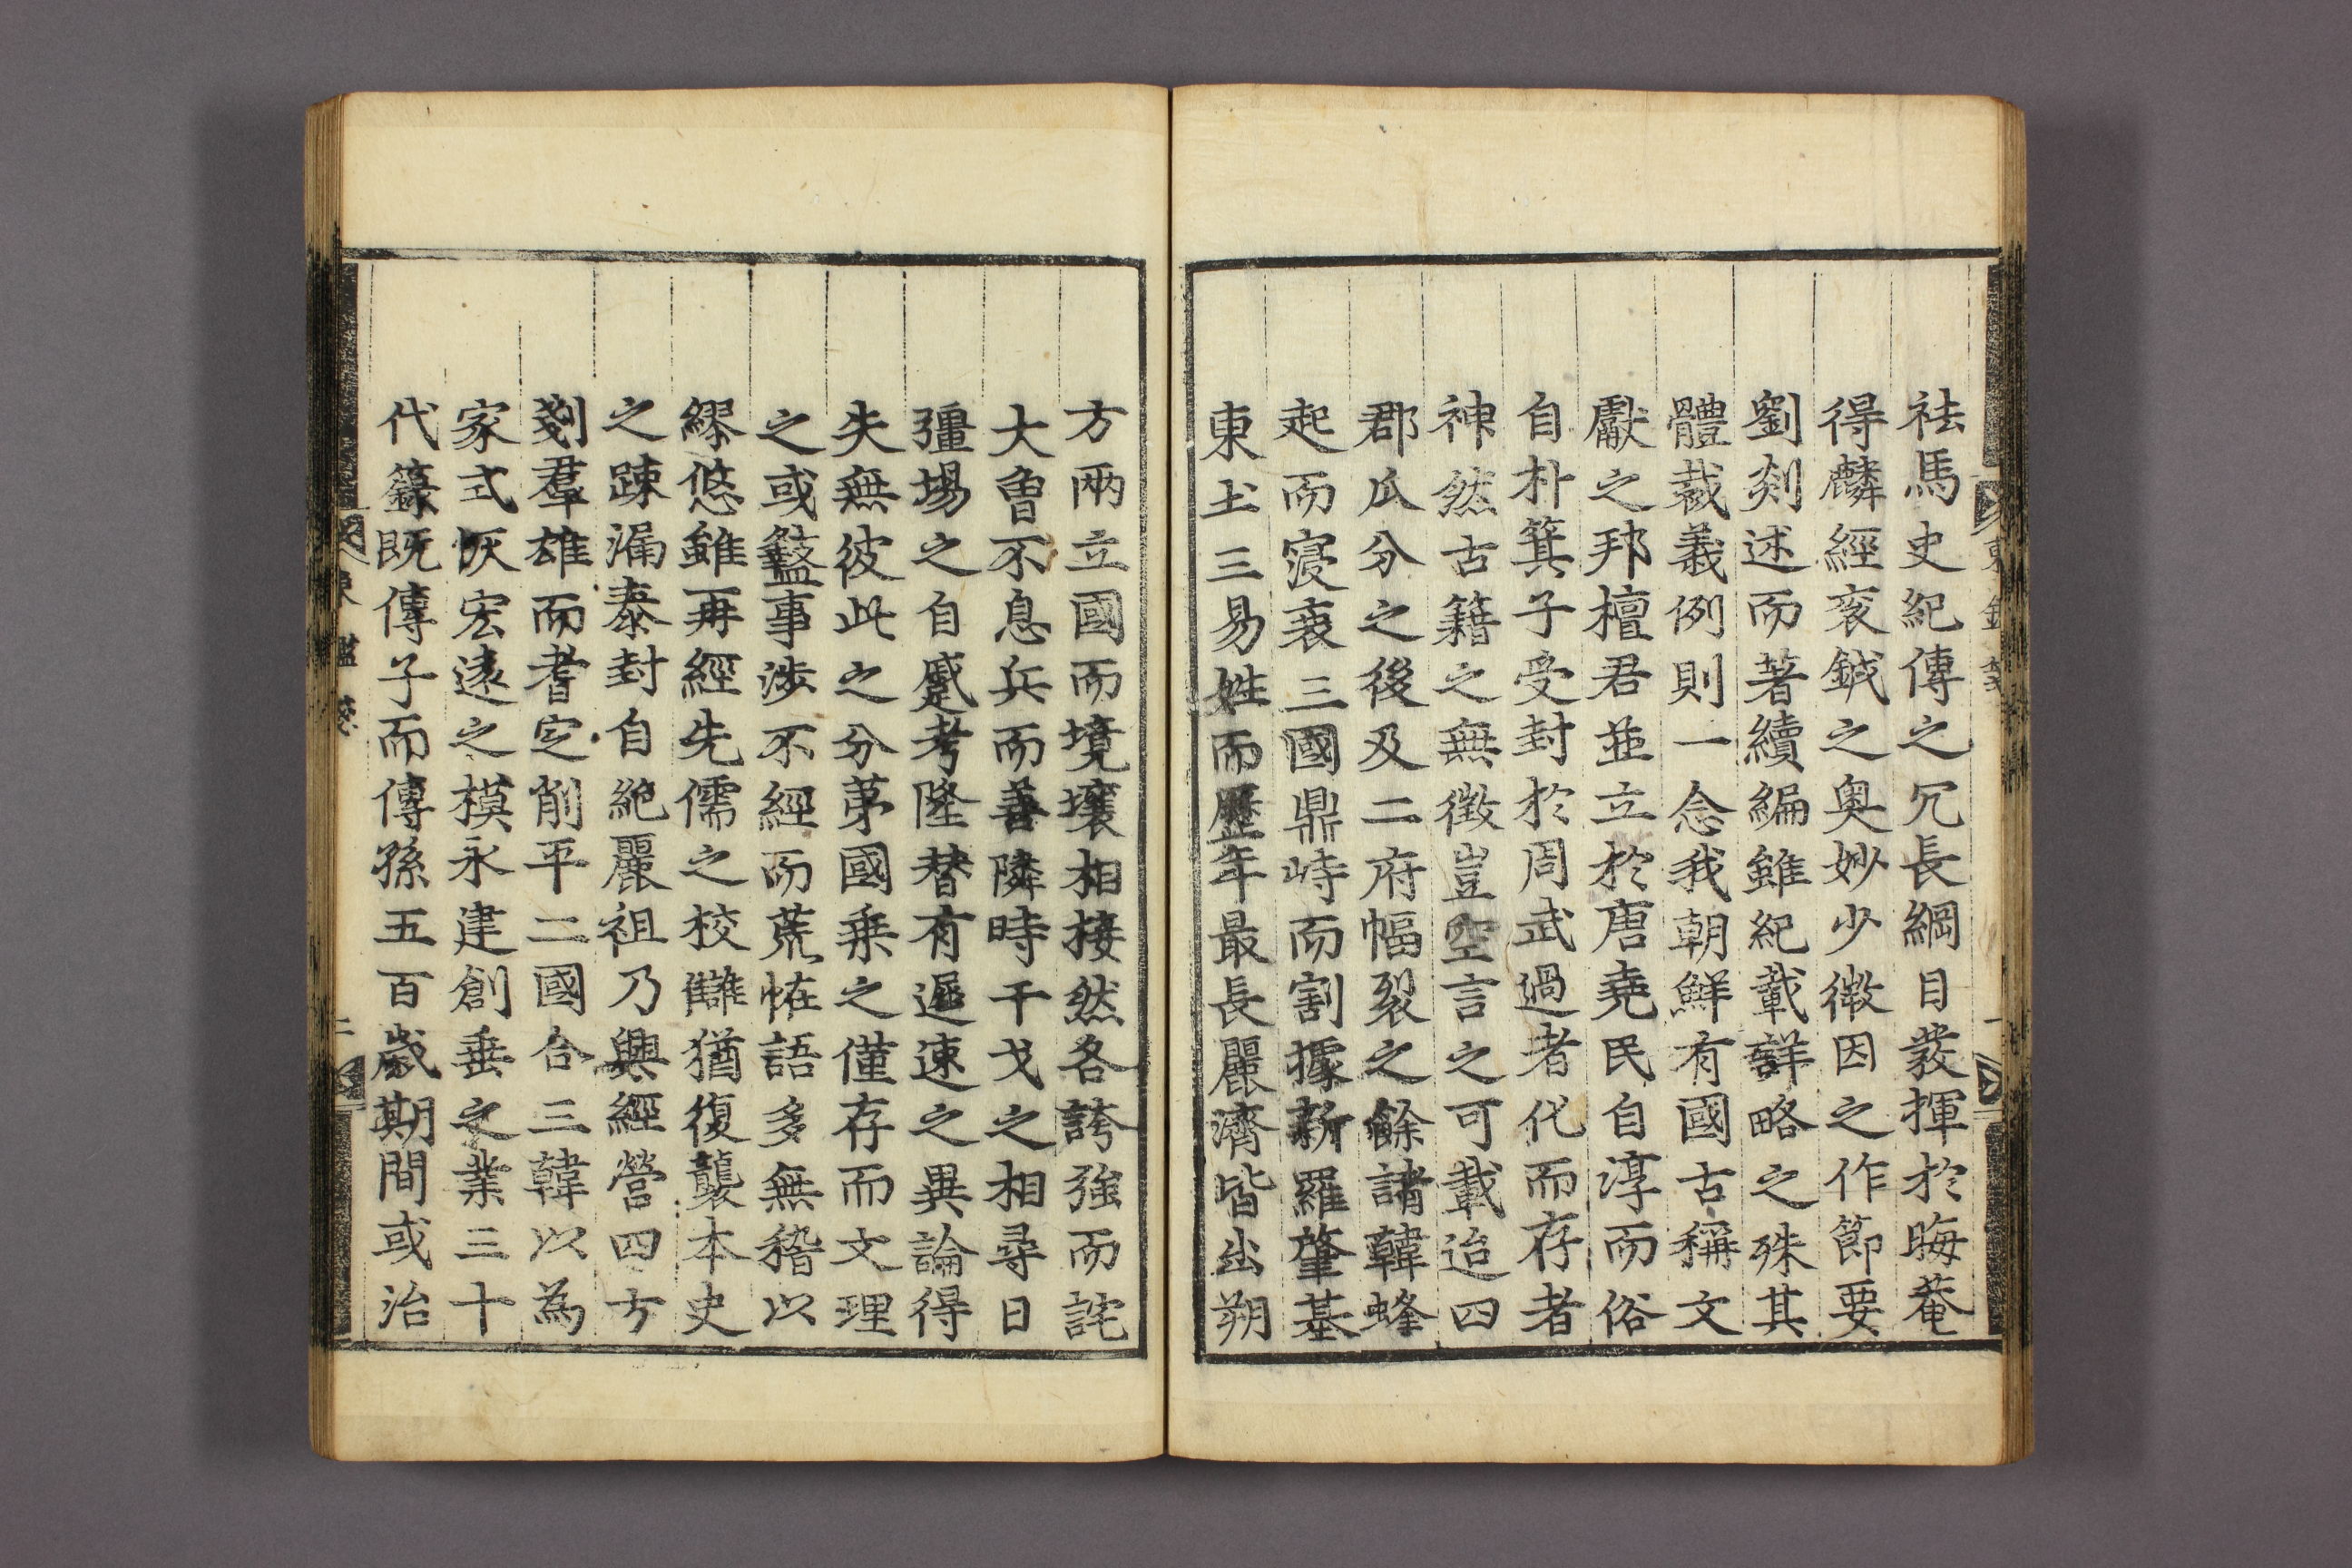 祛馬史紀傳之冗長綱目發揮於晦菴
得麟經衮鉞之奧妙少微因之作節要
劉剡述而著續編雖紀載詳略之殊其
體裁義例則一念我朝鮮有國古稱文
獻之邦檀君並立於唐堯民自淳而俗
自朴箕子受封於周武過者化而存者
神然古籍之無徵豈空言之可載迨四
郡瓜分之後及二府幅裂之餘諸韓蜂
起而寖衰三國鼎峙而割據新羅肇基
東土三易姓而歷年最長麗濟皆出朔
方兩立國而境壤相接然各誇強而詫
大曾不息兵而善隣時干戈之相尋日
彊場之自蹙考隆替有遲速之異論得
失無彼此之分苐國乗之僅存而文理
之或盭事涉不經而荒恠語多無稽以
繆悠雖再經先儒之校讎猶復襲本史
之踈漏泰封自絶麗祖乃興經營四方
剗羣雄而耆定削平二國合三韓以為
家式恢宏遠之模永建創垂之業三十
代籙既傳子而傳孫五百歲期間或治
東鑑
二